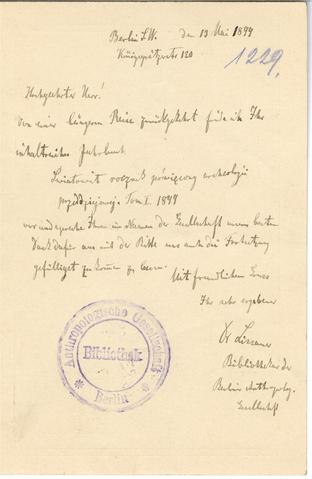 Berlin S.W. den 13 Mai 1899
Königgrätzerstr 120
1229.
Hochgeehrter Herr!
Von einer längeren Reise zurückgekehrt finde ich Ihr
inhaltreiches Jahrbuch
Światowit rocznik poświęcony archeologii
przeddziejowej. Tom I. 1899
vor und spreche Ihnen im Namen der Gesellschaft unsern besten
Dank dafür aus mit der Bitte uns auch die Fortsetzung
gefälligst zukommen zu lassen.
Mit freundlichem Gruss
Ihr sehr ergebener
Dr Lissauer
Bibliothekar der
Berliner Anthropolog.
Gesellschaft
Anthropologische Gesellschaft
Bibliothek
Berlin